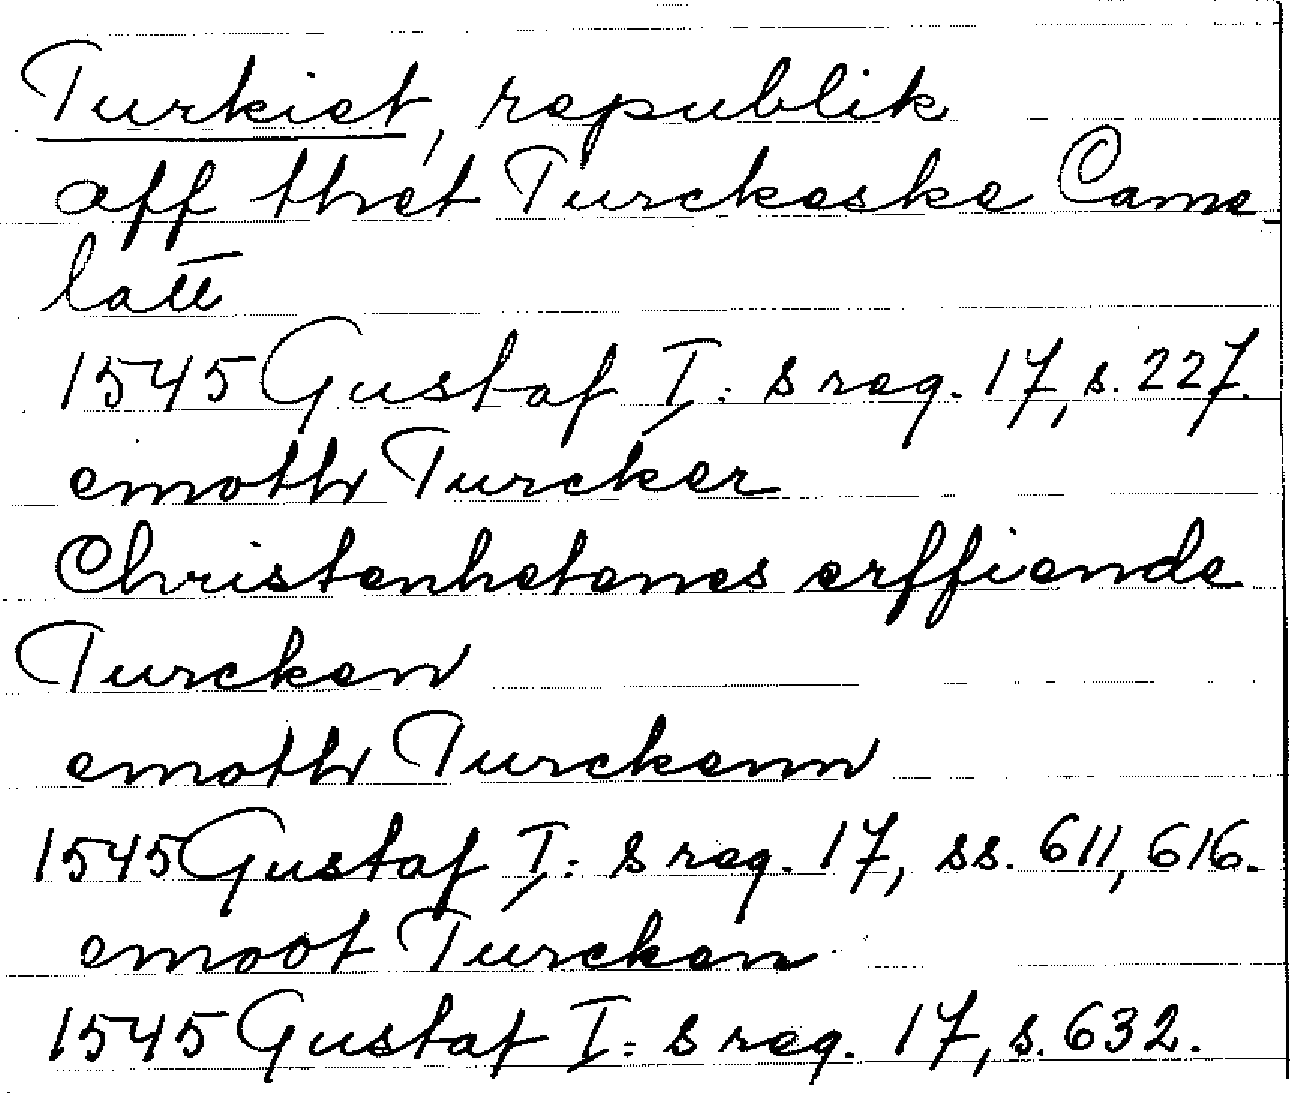 Turkiet, republik
aff thet Turckeske Came-
latt
1545 Gustaf I:s reg. 17, s. 227.
emoth Turcker
Christenhetenes erffiende
Turcken
emoth Turckenn
1545 Gustaf I:s reg. 17, ss. 611, 616.
emoot Turcken
1545 Gustaf I:s reg. 17, s. 632.